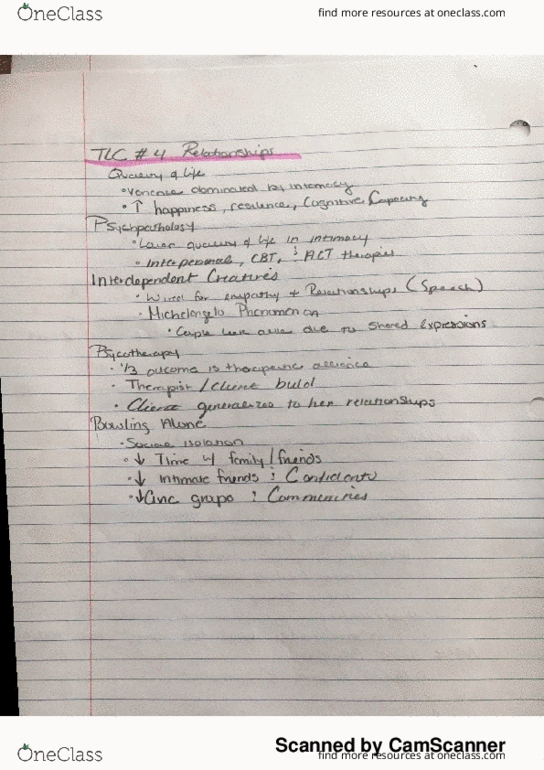 OneClass
find more resources at oneclass.com
TLC # 4 Relationships
Quality of life
• Variance dominated by intimacy
• ↑ happiness, resilience, Cognitive Capacity
Psychpathology
• Lower quality of life in intimacy
• Interpersonal, CBT, & ACT therapies
Interdependent Creatures
• Wired for empathy + Relationships (Speech)
• Michelangelo Phenomenon
• Couple look alike due to shared Expressions
Psycotherapy
• 1/3 outcome is therapeutic alliance
• Therapist / Client build
• Client generalizes to her relationships
Bowling Alone
• Social isolation
• ↓ Time w/ family/friends
• ↓ intimate friends & Confidents
• ↓ Civic groups & Communities
Scanned by CamScanner
OneClass
find more resources at oneclass.com